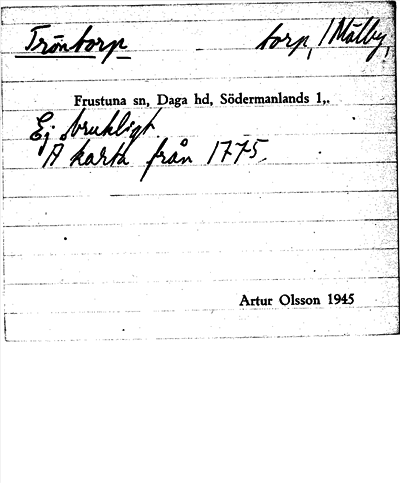 Tröntorp torp, /Mälby,
Frustuna sn, Daga hd, Södermanlands l,.
Ej brukligt
A karta från 1775.
Artur Olsson 1945